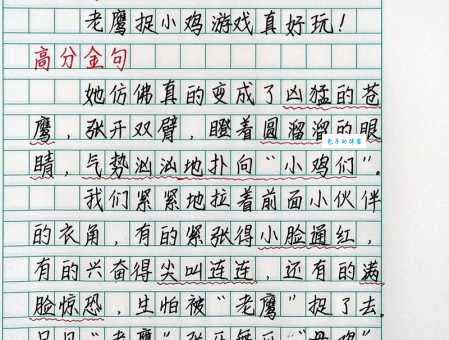 老鹰捉小鸡游戏真好玩！
高分金句
她仿佛真的变成了凶猛的苍
鹰，张开双臂，瞪着圆溜溜的眼
睛，气势汹汹地扑向“小鸡们”。
我们紧紧地拉着前面小伙伴
的衣角，有的紧张得小脸通红，
有的兴奋得尖叫连连，还有的满
脸惊恐，生怕被“老鹰”捉了去。